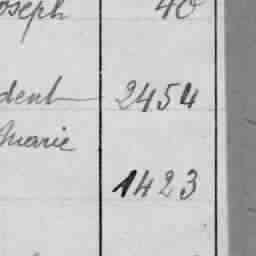 oseph 40
dent 2454
Marie
1423